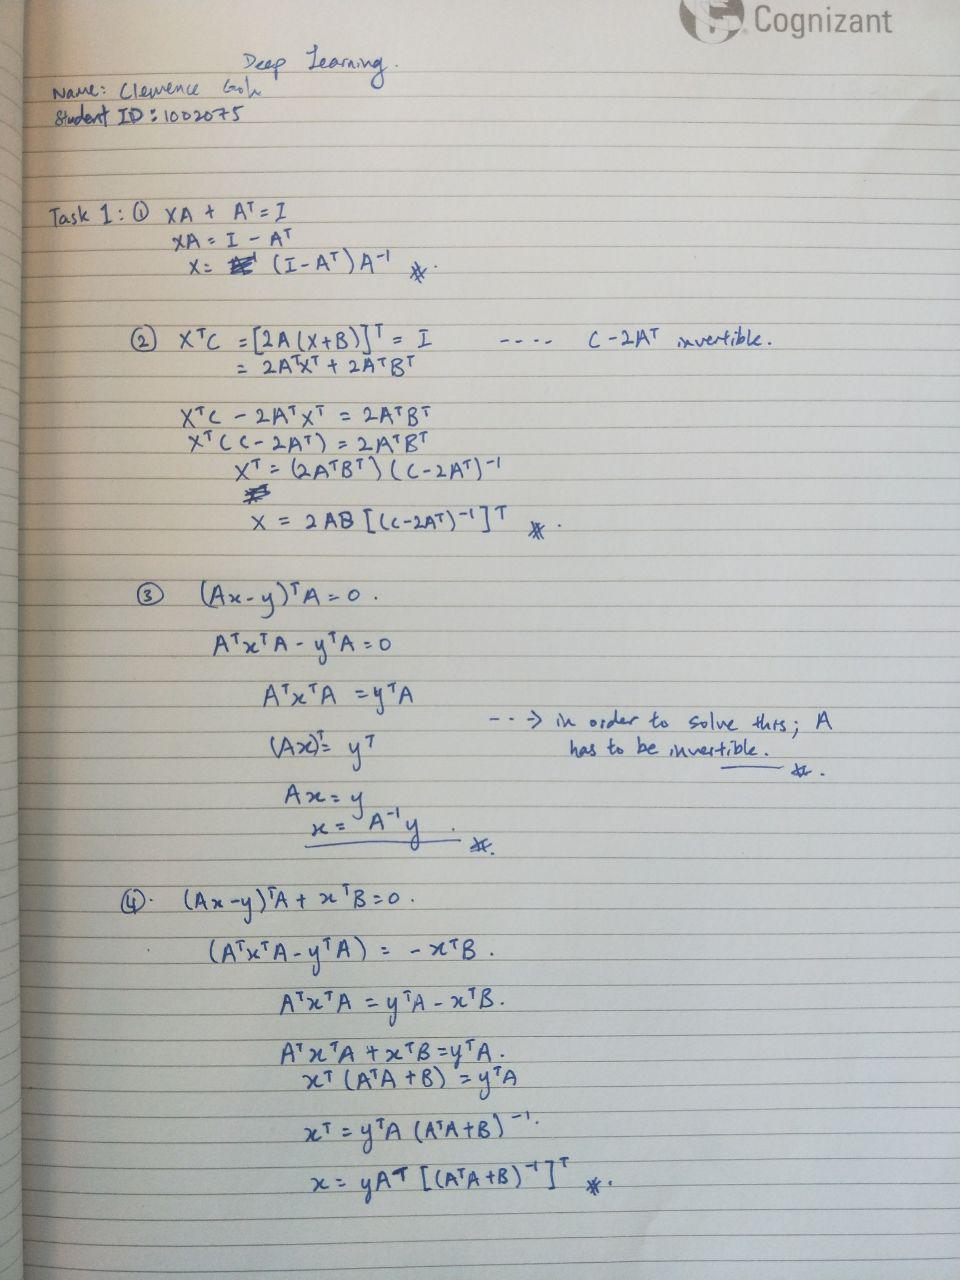 Cognizant
Deep Learning.
Name: Clemence Goh
Student ID: 1002075
Task 1: ① XA + Aᵀ = I
XA = I - Aᵀ
X = (I-Aᵀ)A⁻¹
② XᵀC = [2A(X+B)]ᵀ = I ---- C-2Aᵀ invertible.
= 2AᵀXᵀ + 2AᵀBᵀ
XᵀC - 2AᵀXᵀ = 2AᵀBᵀ
Xᵀ(C-2Aᵀ) = 2AᵀBᵀ
Xᵀ = (2AᵀBᵀ)(C-2Aᵀ)⁻¹
X = 2AB[(C-2Aᵀ)⁻¹]ᵀ
③ (Ax-y)ᵀA = 0.
AᵀxᵀA - yᵀA = 0
AᵀxᵀA = yᵀA
--> in order to solve this; A
(Ax)ᵀ = yᵀ
has to be invertible.
Ax = y
x = A⁻¹y.
④. (Ax-y)ᵀA + xᵀB = 0.
(AᵀxᵀA - yᵀA) = -xᵀB.
AᵀxᵀA = yᵀA - xᵀB.
AᵀxᵀA + xᵀB = yᵀA.
xᵀ(AᵀA + B) = yᵀA
xᵀ = yᵀA (AᵀA+B)⁻¹.
x = yAᵀ [(AᵀA+B)⁻¹]ᵀ